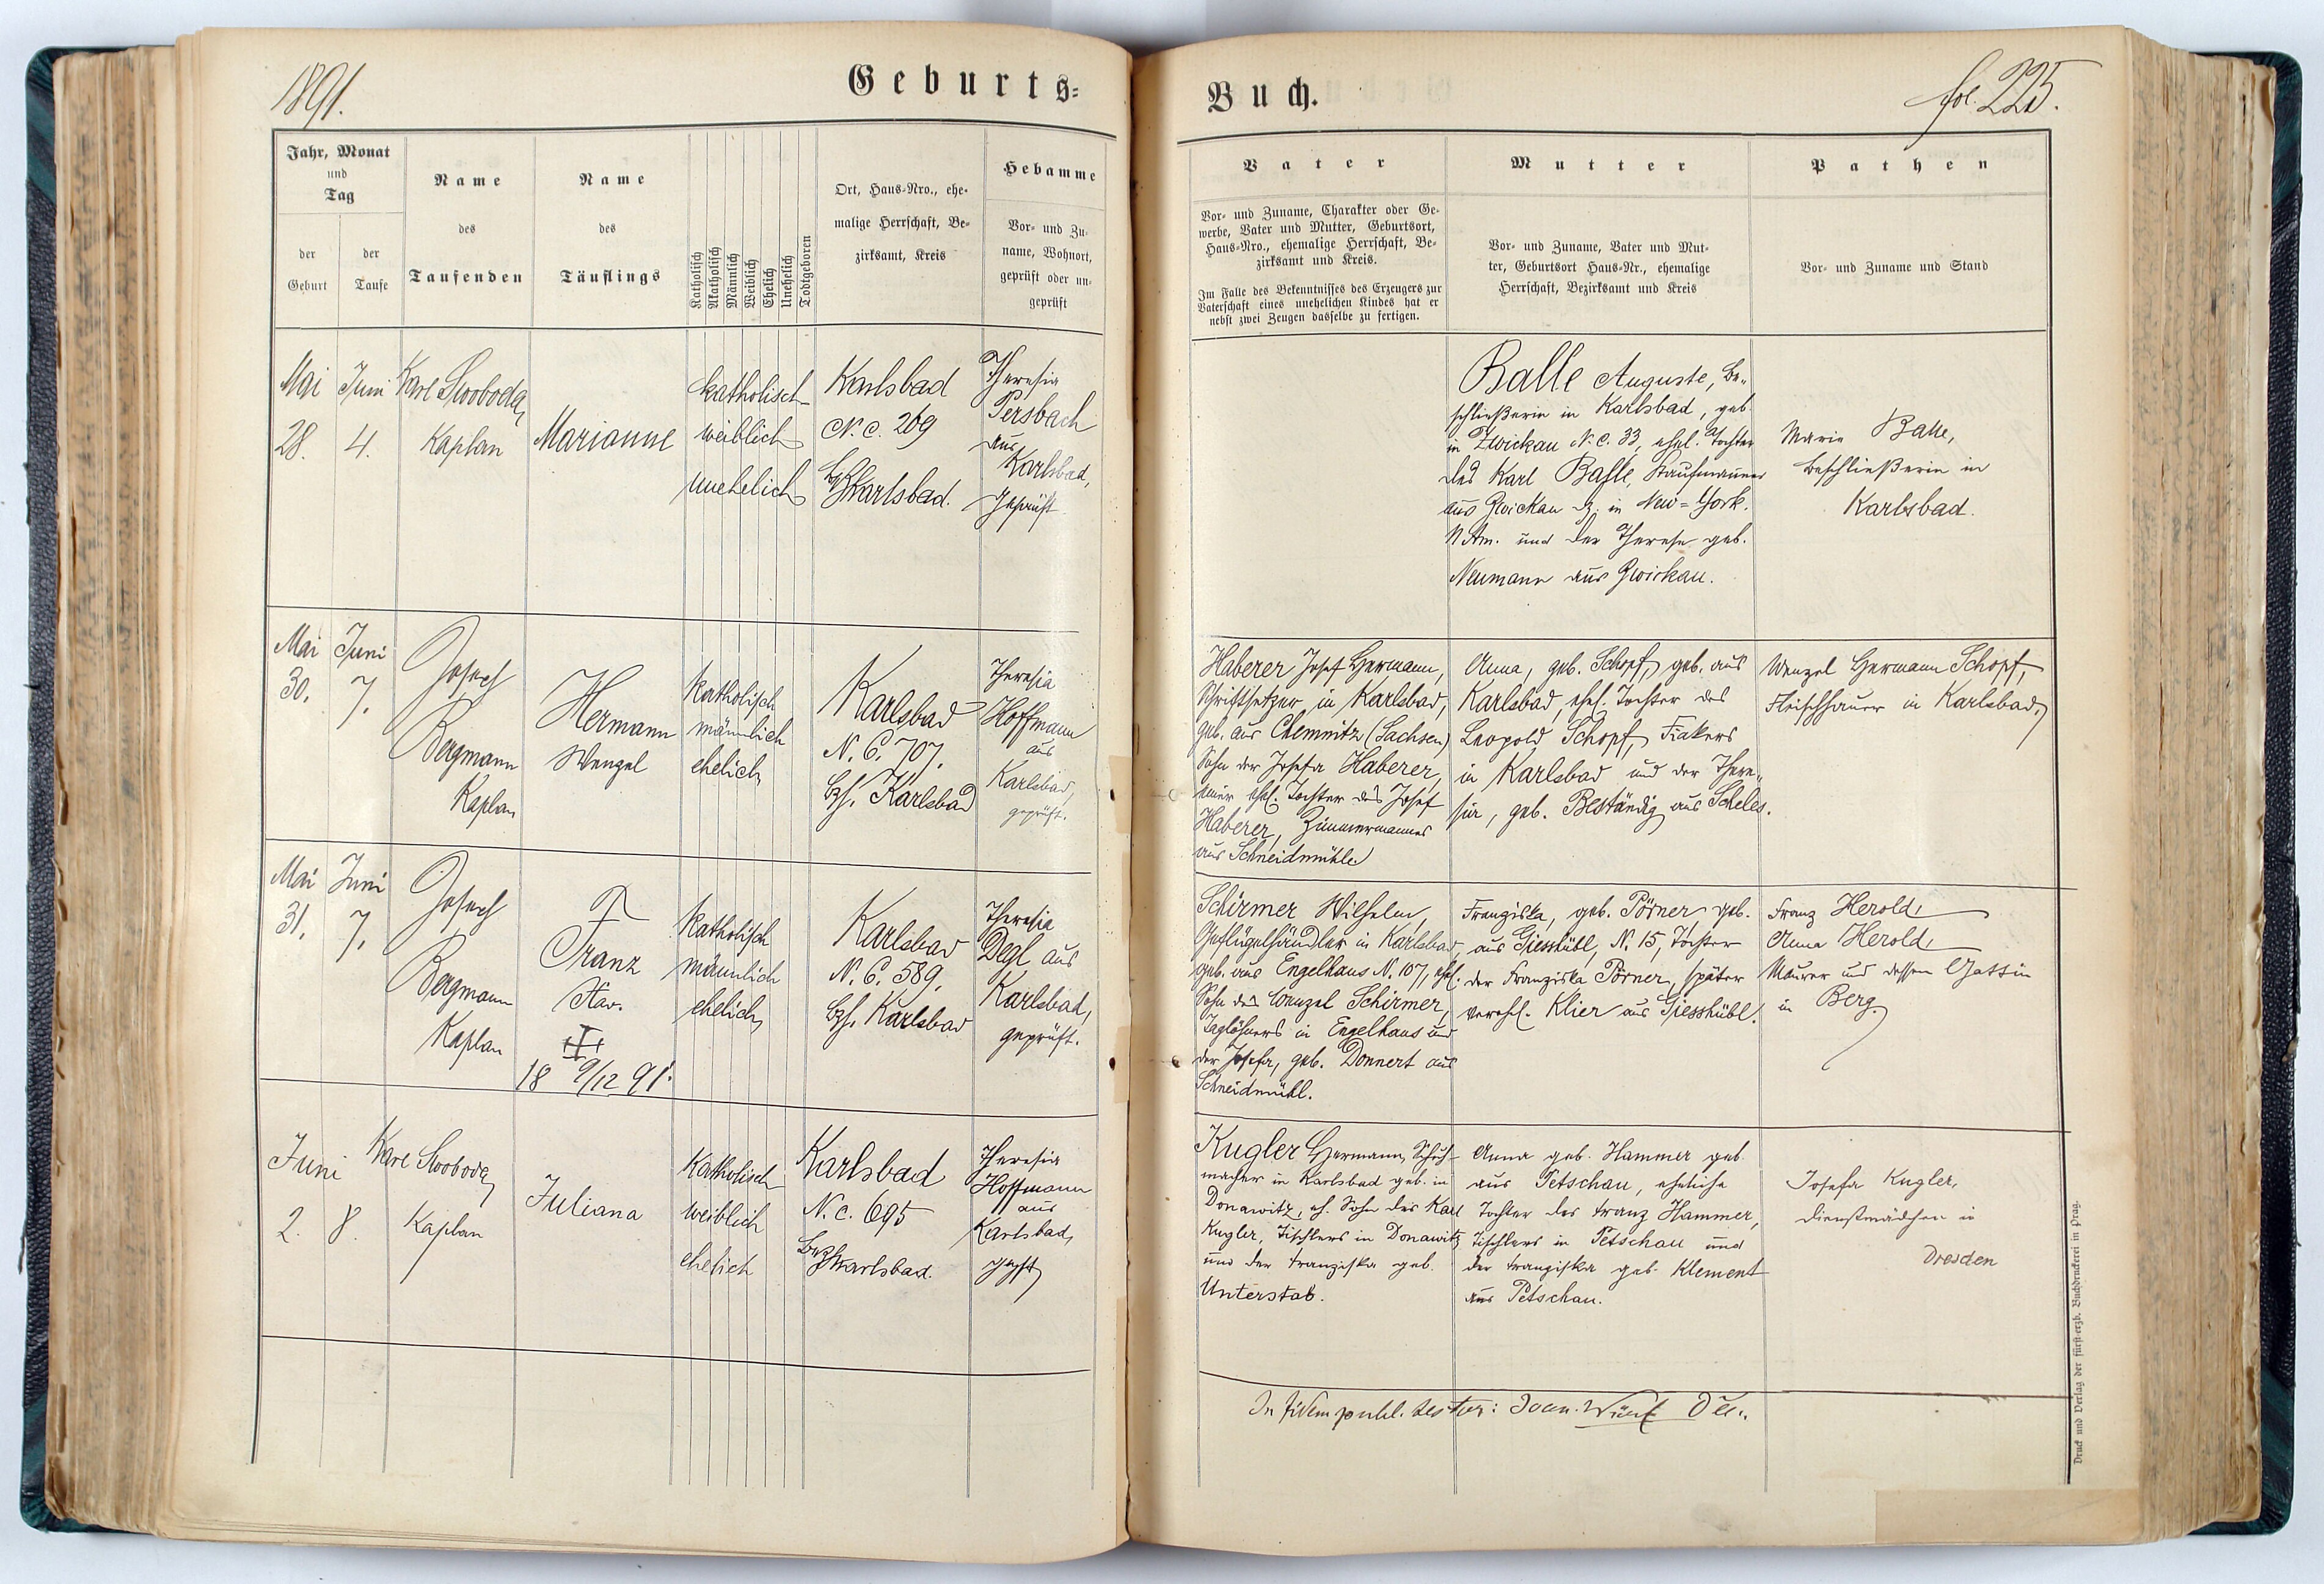 1891.
Geburts-
Jahr, Monat
und
Tag
der
Geburt
der
Taufe
Name
des
Taufenden
Name
des
Täuflings
Katholisch
Akatholisch
Männlich
Weiblich
Ehelich
Unehelich
Todtgeboren
Ort, Haus-Nro., ehe-
malige Herrschaft, Be-
zirksamt, Kreis
Hebamme
Vor- und Zu-
name, Wohnort,
geprüft oder un-
geprüft
Mai
28.
Juni
4.
Karl Swoboda,
Kaplan
Marianne
katholisch
weiblich
unehelich
Karlsbad
N. C. 269
Karlsbad.
Theresia
Persbach
aus
Karlsbad,
geprüft
Mai
30.
Juni
7.
Josef
Bergmann
Kaplan
Hermann
Wenzel
Katholisch
männlich
ehelich
Karlsbad
N. C. 707.
Bzh. Karlsbad
Theresia
Hoffmann
aus
Karlsbad,
geprüft.
Mai
31.
Juni
7.
Josef
Bergmann
Kaplan
Franz
Xav.
18 9/12 91.
Katholisch
männlich
ehelich
Karlsbad
N. C. 589.
Bzh. Karlsbad
Theresia
Degl aus
Karlsbad,
geprüft.
Juni
2.
8.
Karl Swoboda
Kaplan
Juliana
Katholisch
weiblich
ehelich
Karlsbad
N. C. 695
Karlsbad.
Theresia
Hoffmann
aus
Karlsbad,
Buch.
fol. 225.
Vater
Vor- und Zuname, Charakter oder Ge-
werbe, Vater und Mutter, Geburtsort,
Haus-Nro., ehemalige Herrschaft, Be-
zirksamt und Kreis.
Im Falle des Bekenntnisses des Erzeugers zur
Vaterschaft eines unehelichen Kindes hat er
nebst zwei Zeugen dasselbe zu fertigen.
Mutter
Vor- und Zuname, Vater und Mut-
ter, Geburtsort Haus-Nr., ehemalige
Herrschaft, Bezirksamt und Kreis
Pathen
Vor- und Zuname und Stand
Balle Auguste, Be-
schließerin in Karlsbad, geb.
in Zwickau N. C. 33, ehel. Tochter
des Karl Balle, Kaufmannes
aus Zwickau dz. in New-York.
N Am. und der Therese geb.
Neumann aus Zwickau.
Marie Balle,
Beschließerin in
Karlsbad.
Haberer Josef Hermann,
Schriftsetzer in Karlsbad,
geb. aus Chemnitz (Sachsen)
Sohn der Josefa Haberer,
einer ehel. Tochter des Josef
Haberer, Zimmermannes
aus Schneidmühle
Anna, geb. Schopf, geb. aus
Karlsbad, ehel. Tochter des
Leopold Schopf, Fiakers
in Karlsbad und der There-
sia, geb. Beständig aus Scheles.
Wenzel Hermann Schopf,
Fleischhauer in Karlsbad,
Schirmer Wilhelm,
Geflügelhändler in Karlsbad,
geb. aus Engelhaus N. 107, ehel.
Sohn des Wenzel Schirmer,
Taglöhners in Engelhaus und
der Josefa, geb. Donnert aus
Schneidmühl.
Franziska, geb. Pörner geb.
aus Giesshübl, N. 15, Tochter
der Franziska Pörner, später
verehl. Klier aus Giesshübl.
Franz Herold,
Anna Herold,
Maurer und dessen Gattin
in Berg.
Kugler Hermann, Schuh-
macher in Karlsbad geb. in
Donawitz, eh. Sohn des Karl
Kugler, Tischlers in Donawitz
und der Franziska geb.
Unterstab.
Anna geb. Hammer geb.
aus Petschau, eheliche
Tochter des Franz Hammer,
Tischlers in Petschau und
der Franziska geb. Klement
aus Petschau.
Josefa Kugler,
Dienstmädchen in
Dresden
In fidem publ. testor: Joan.
Druck und Verlag der fürst-erzb. Buchdruckerei in Prag.